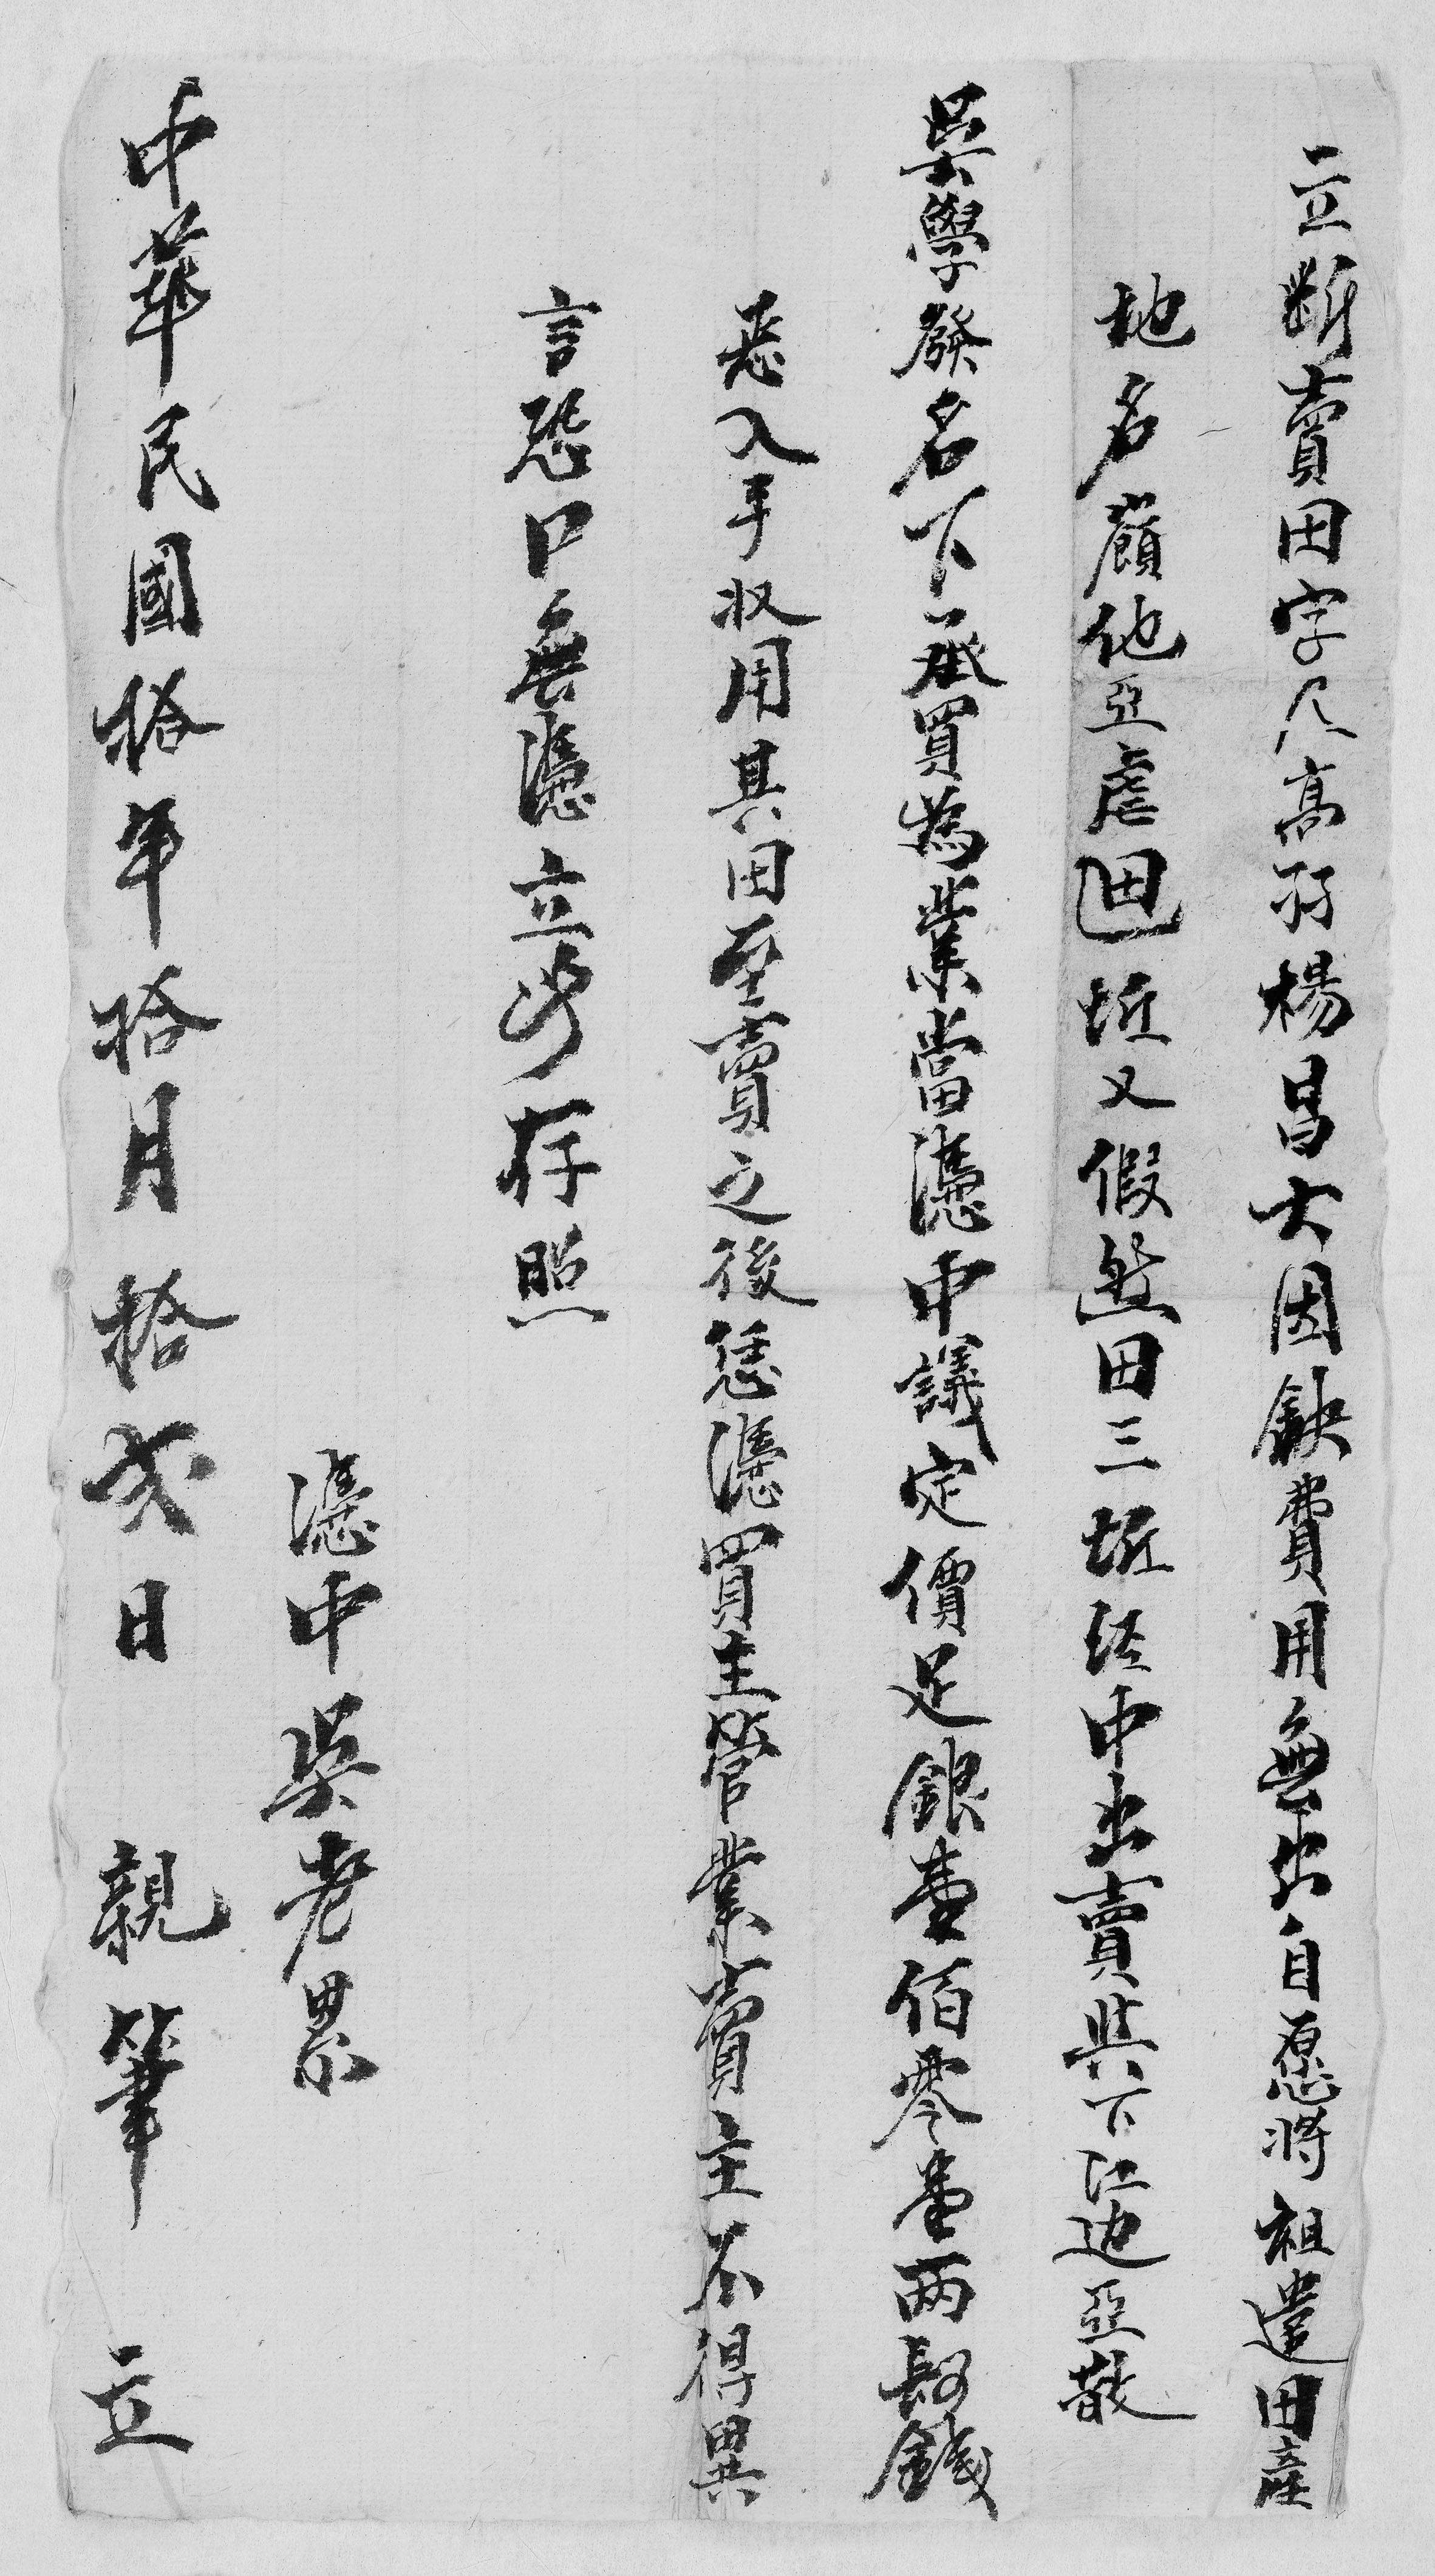 立斷賣田字人高孖楊昌大因缺費用無出自愿将祖遺田產
地名嶺他亞虐田一坵又假盤田三坵㳀中出賣與下江边亞散
吳學發名下承買為業當凴中議定價足銀壹佰零壹两 錢
悉入手収用其田至賣之後恁凴買主管業賣主不得異
言恐口無凴立字存照
凴中吳老累
中華民國拾年拾月拾弍日 親筆 立